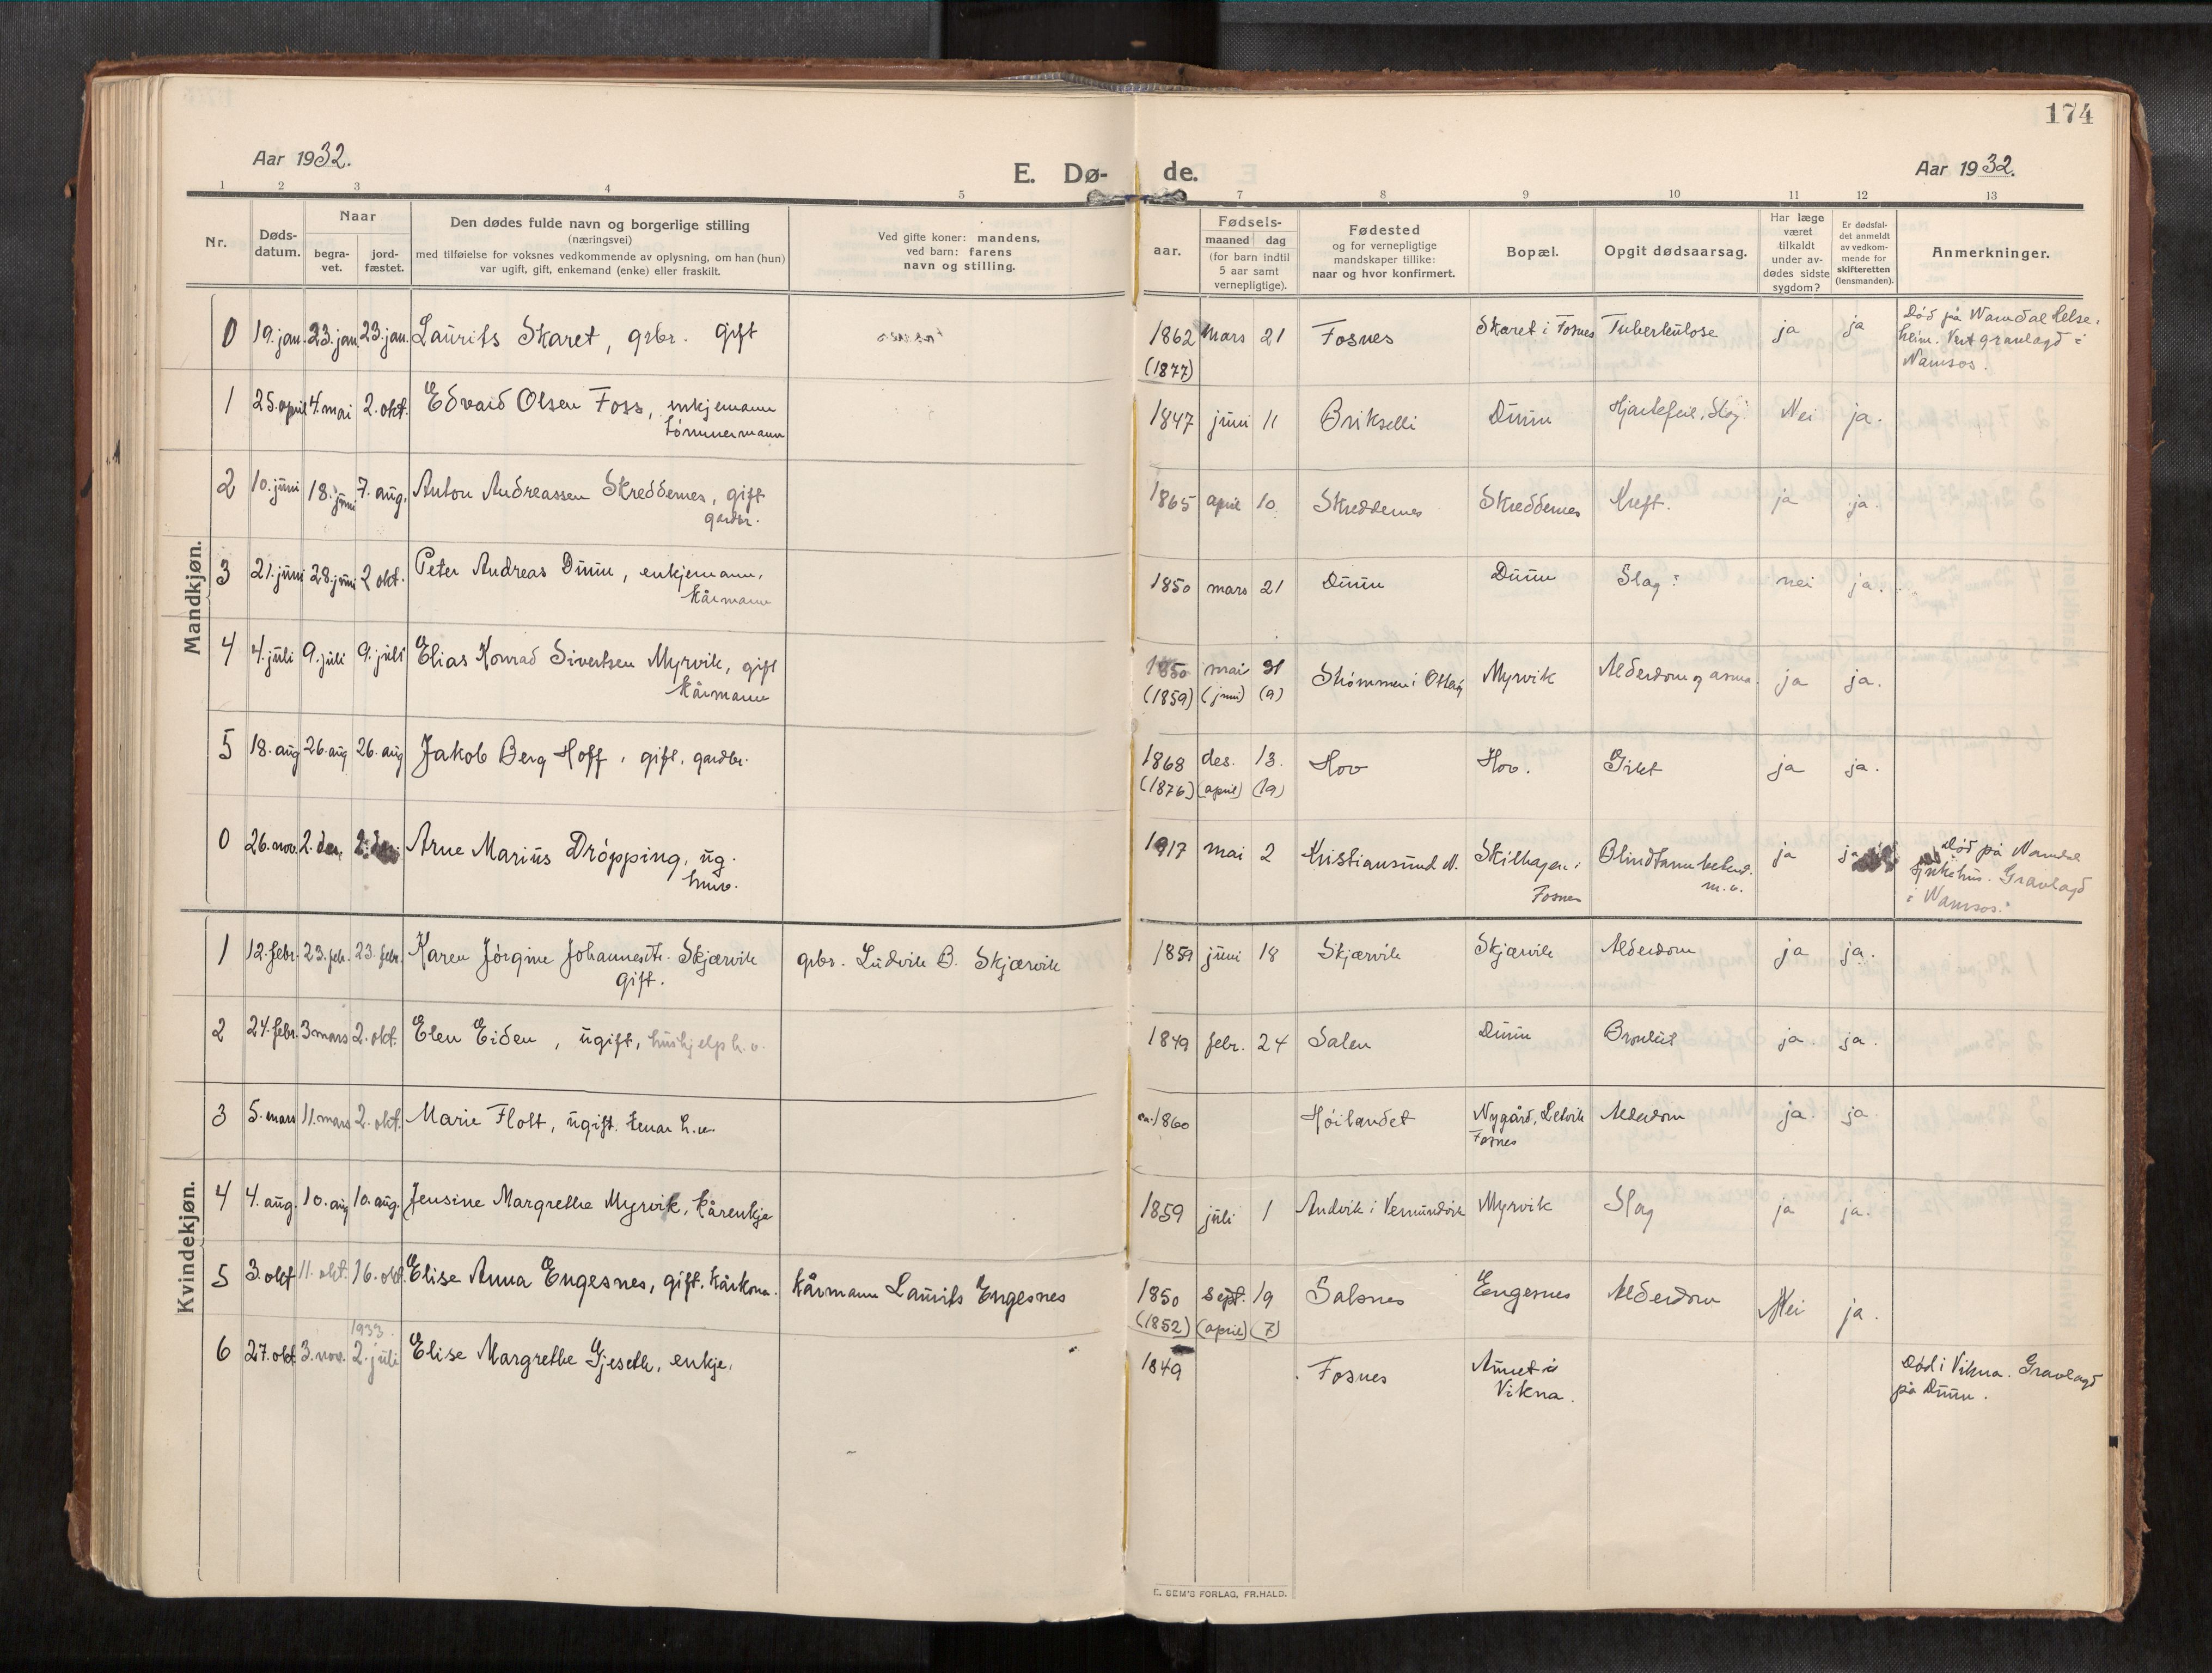 174
Aar 1932.
E. Dø- de.
Aar 1932.
1 2 3 4 5 7 8 9 10 11 12 13
Nr.
Døds-
datum.
Naar
begra-
vet.
jord-
fæstet.
Den dødes fulde navn og borgerlige stilling
(næringsvei)
med tilføielse for voksnes vedkommende av oplysning, om han (hun)
var ugift, gift, enkemand (enke) eller fraskilt.
Ved gifte koner: mandens,
ved barn: farens
navn og stilling.
Fødsels-
aar.
maaned
dag
(for barn indtil
5 aar samt
vernepligtige).
Fødested
og for vernepligtige
mandskaper tillike:
naar og hvor konfirmert.
Bopæl.
Opgit dødsaarsag.
Har læge
været
tilkaldt
under av-
dødes sidste
sygdom?
Er dødsfal-
det anmeldt
av vedkom-
mende for
skifteretten
(lensmanden).
Anmerkninger.
Mandkjøn.
0 19. jan. 23. jan. 23. jan. Laurits Skaret, grbr. gift 1862 mars 21 Fosnes Skaret i Fosnes Tuberkulose ja ja Død på Namdal helse-
(1877) heim. Vert gravlagd i
Namsos.
1 25. april 4. mai 2. okt. Edvard Olsen Foss, enkjemann 1847 juni 11 Brikselli Duun Hjartefeil, Slag. Nei ja.
tømmermann
2 10. juni 18. juni 7. aug. Anton Andreassen Skreddernes, gift 1865 april 10 Skreddernes Skreddernes Kreft. ja ja.
gardbr.
3 21. juni 28. juni 2 okt. Peter Andreas Duun, enkjemann, 1850 mars 21 Duun Duun Slag nei ja.
Kårmann
4 4. juli 9. juli 9. juli Elias Konrad Sivertsen Myrvik, gift 1850 mai 31 Strømmen i Otterøy Myrvik Alderdom og asma. ja ja.
Kårmann (1859) (juni) (9)
5 18. aug 26. aug 26. aug Jakob Berg Hoff, gift, gardbr. 1868 des. 13. Hov Hov. Gikt ja ja.
(1876) (april) (19)
0 26. nov. 2. des. 2. des. Arne Marius Drøpping, ug. 1917 mai 2 Kristiansund N. Skilhagen i Blindtarmbetend. ja ja Død på Namdal
Fosnes m.v. sjukehus. Gravlagd
i Namsos.
Kvindekjøn.
1 12. febr. 23. feb. 23. febr. Karen Jørgine Johannesdtr. Skjærvik grbr. Ludvik B. Skjærvik 1859 juni 18 Skjærvik Skjærvik Alderdom ja ja.
gift.
2 24. febr. 3 mars 2. okt. Elen Eiden, ugift, hushjelp h. v. 1849 febr. 24 Salen Duun Bronkit ja ja.
3 5. mars 11. mars 2. okt. Marie Flott, ugift. tenar h.v. 1860 Høilandet Nygård, Letvik Alderdom ja. ja
Fosnes
4 4. aug. 10. aug 10. aug. Jensine Margrethe Myrvik, Kårenkje 1859 juli 1 Andvik i Vemundvik Myrvik Slag ja ja.
5 3. okt 11. okt. 16. okt. Elise Anna Engesnes, gift. Kårkona. Kårmann Laurits Engesnes 1850 sept. 19 Salsnes Engesnes Alderdom Nei ja.
(1852) (april) (7)
1933.
6 27. okt. 3. nov. 2. juli Elise Margrethe Gjeseth, enkje. 1849 Fosnes Død i Vikna. Gravlagd
Vikna. på Duun.
E. SEM'S FORLAG, FR.HALD.